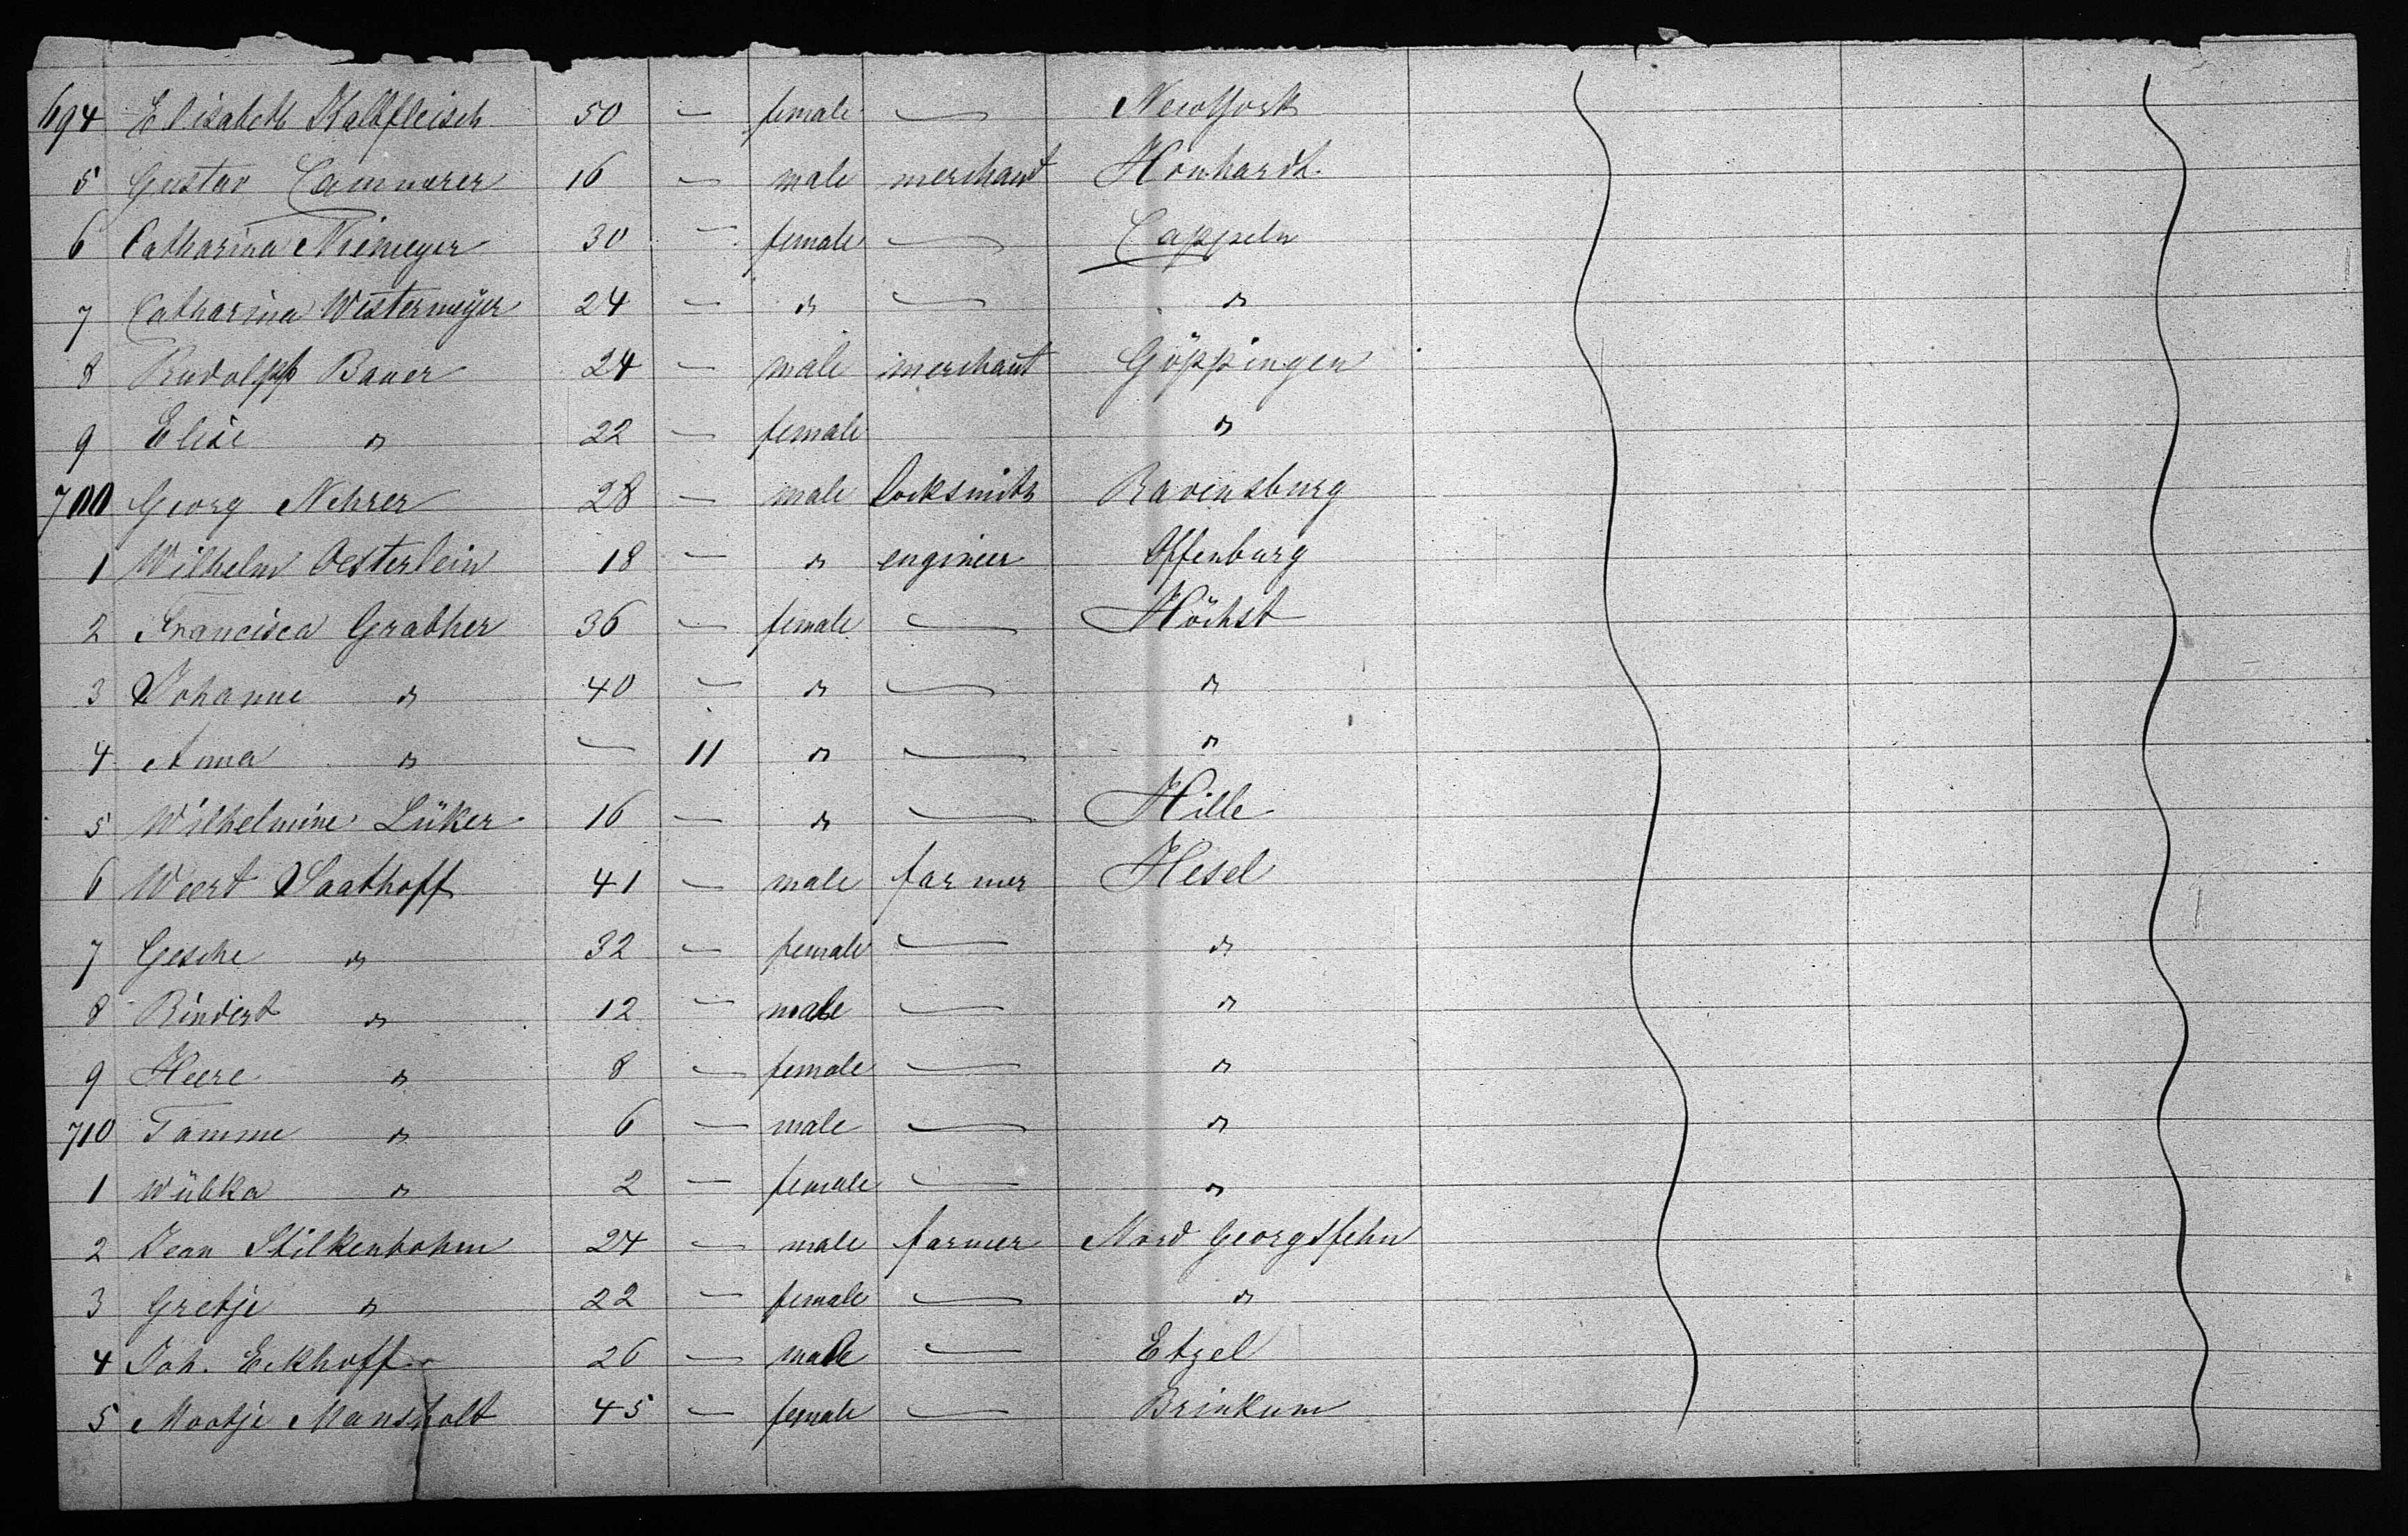 694 Elisabeth Kalbfleisch 50 — female — New York
5 Gustav Cammerer 16 — male merchant Honhardt.
6 Catharina Niemeyer 30 — female — Cappeln
7 Catharina Westermeyer 24 — " — "
8 Rudolph Bauer 24 — male merchant Göppingen
9 Elise " 22 — female "
700 Georg Nehrer 28 — male locksmith Ravensburg
1 Wilhelm Oesterlein 18 — " engineer Offenburg
2 Francisca Grabher 36 — female — Höchst
3 Johanne " 40 — " — "
4 Anna " — 11 " — "
5 Wilhelmine Lüker 16 — " — Hille
6 Weert Saathoff 41 — male farmer Hesel
7 Gesche " 32 — female — "
8 Rindert " 12 — male — "
9 Heere " 8 — female — "
710 Tamme " 6 — male — "
1 Wübka " 2 — female — "
2 Jean Stilkenbohm 24 — male farmer Nord Georgsfehn
3 Gretje " 22 — female — "
4 Joh. Eckhoff 26 — male — Etzel
5 Mootje Mansholt 45 — female — Brinkum